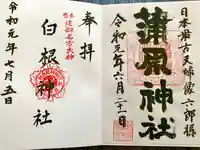 日本最古夫婦像六郎様
蒲原神社
令和元年六月二十一日
奉拝
白根神社
令和元年七月五日